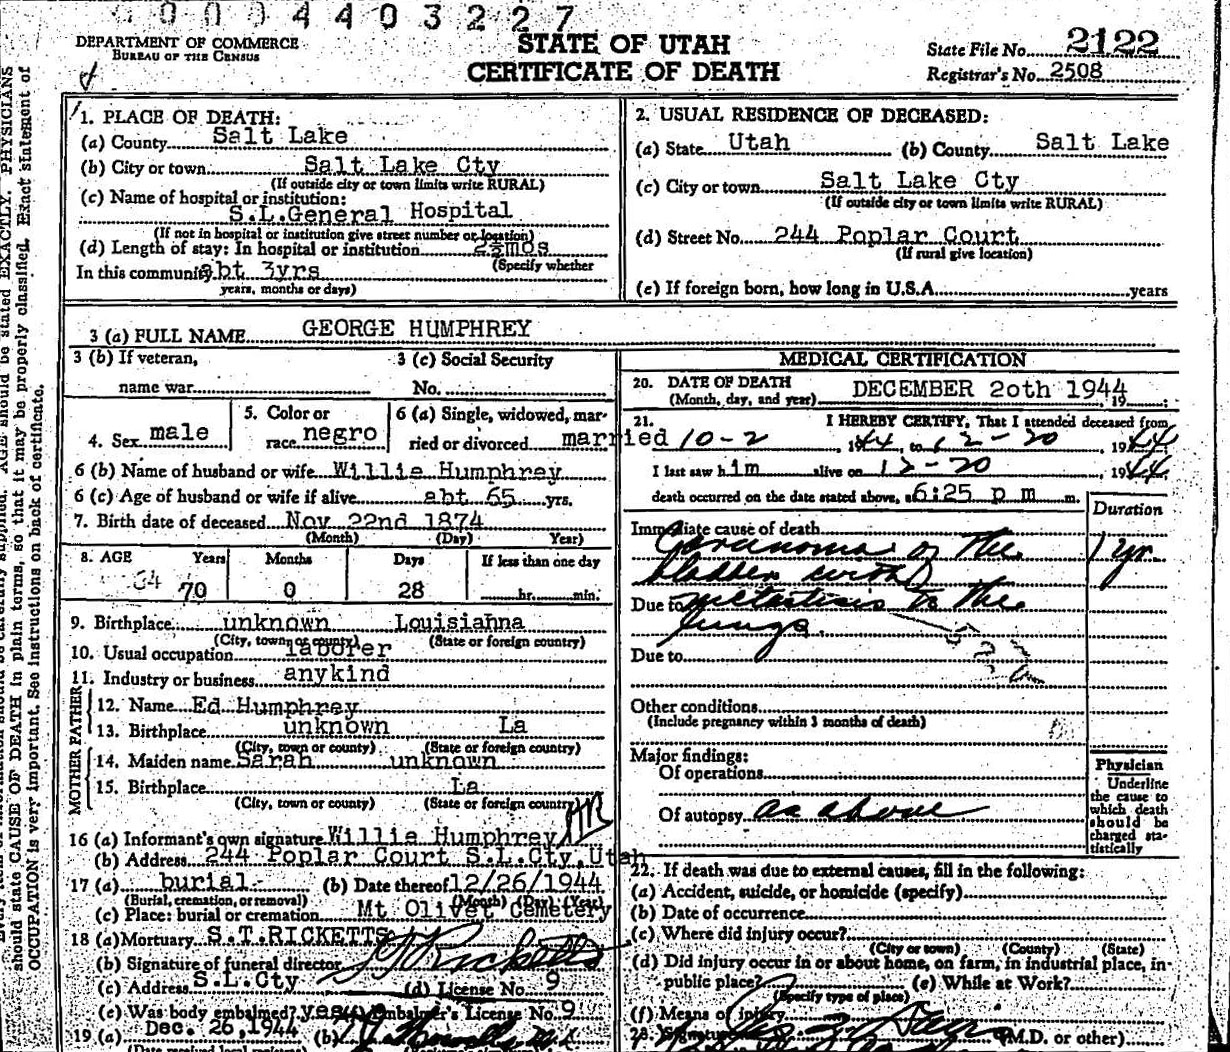 0004403227
DEPARTMENT OF COMMERCE
BUREAU OF THE CENSUS
STATE OF UTAH
CERTIFICATE OF DEATH
State File No. 2122
Registrar's No. 2508
1. PLACE OF DEATH:
(a) County Salt Lake
(b) City or town Salt Lake Cty
(If outside city or town limits write RURAL)
(c) Name of hospital or institution:
S.L.General Hospital
(If not in hospital or institution give street number or location)
(d) Length of stay: In hospital or institution 2½mos
(Specify whether
In this community abt 3yrs
years, months or days)
2. USUAL RESIDENCE OF DECEASED:
(a) State Utah (b) County Salt Lake
(c) City or town Salt Lake Cty
(If outside city or town limits write RURAL)
(d) Street No. 244 Poplar Court
(If rural give location)
(e) If foreign born, how long in U.S.A. years
3 (a) FULL NAME GEORGE HUMPHREY
3 (b) If veteran,
name war
3 (c) Social Security
No.
4. Sex male
5. Color or
race negro
6 (a) Single, widowed, mar-
ried or divorced married
6 (b) Name of husband or wife Willie Humphrey
6 (c) Age of husband or wife if alive abt 65 yrs.
7. Birth date of deceased Nov 22nd 1874
(Month) (Day) Year)
8. AGE Years Months Days If less than one day
70 0 28 hr. min.
9. Birthplace unknown Louisianna
(City, town or county) (State or foreign country)
10. Usual occupation laborer
11. Industry or business anykind
FATHER
12. Name Ed Humphrey
13. Birthplace unknown La
(City, town or county) (State or foreign country)
MOTHER
14. Maiden name Sarah unknown
15. Birthplace La
(City, town or county) (State or foreign country)
16 (a) Informant's own signature Willie Humphrey
(b) Address 244 Poplar Court S.L.Cty, Utah
17 (a) burial (b) Date thereof 12/26/1944
(Burial, cremation, or removal) (Month) (Day) (Year)
(c) Place: burial or cremation Mt Olivet Cemetery
18 (a) Mortuary S.T.RICKETTS
(b) Signature of funeral director Ricketts
(c) Address S.L.Cty (d) License No. 9
(e) Was body embalmed? yes (f) Embalmer's License No. 9
19 (a) Dec. 26, 1944 (b)
(Date received local registrar)
MEDICAL CERTIFICATION
20. DATE OF DEATH
(Month, day, and year) DECEMBER 2oth 1944 19
21. I HEREBY CERTIFY, That I attended deceased from
10-2 1944 to 12-20 1944
I last saw him alive on 12-20 1944
death occurred on the date stated above, at 6:25 p m m.
Duration
Immediate cause of death
Carcinoma of the 1 yr.
bladder with
Due to metastisis to the
lungs.
Due to
Other conditions
(Include pregnancy within 3 months of death)
Major findings:
Of operations
Of autopsy as above
Physician
Underline
the cause to
which death
should be
charged sta-
tistically
22. If death was due to external causes, fill in the following:
(a) Accident, suicide, or homicide (specify)
(b) Date of occurrence
(c) Where did injury occur?
(City or town) (County) (State)
(d) Did injury occur in or about home, on farm, in industrial place, in-
public place? (e) While at Work?
(Specify type of place)
(f) Means of injury
23. Signature (M.D. or other)
should state CAUSE OF DEATH in plain terms, so that it may be properly classified. Exact statement of
OCCUPATION is very important. See instructions on back of certificate.